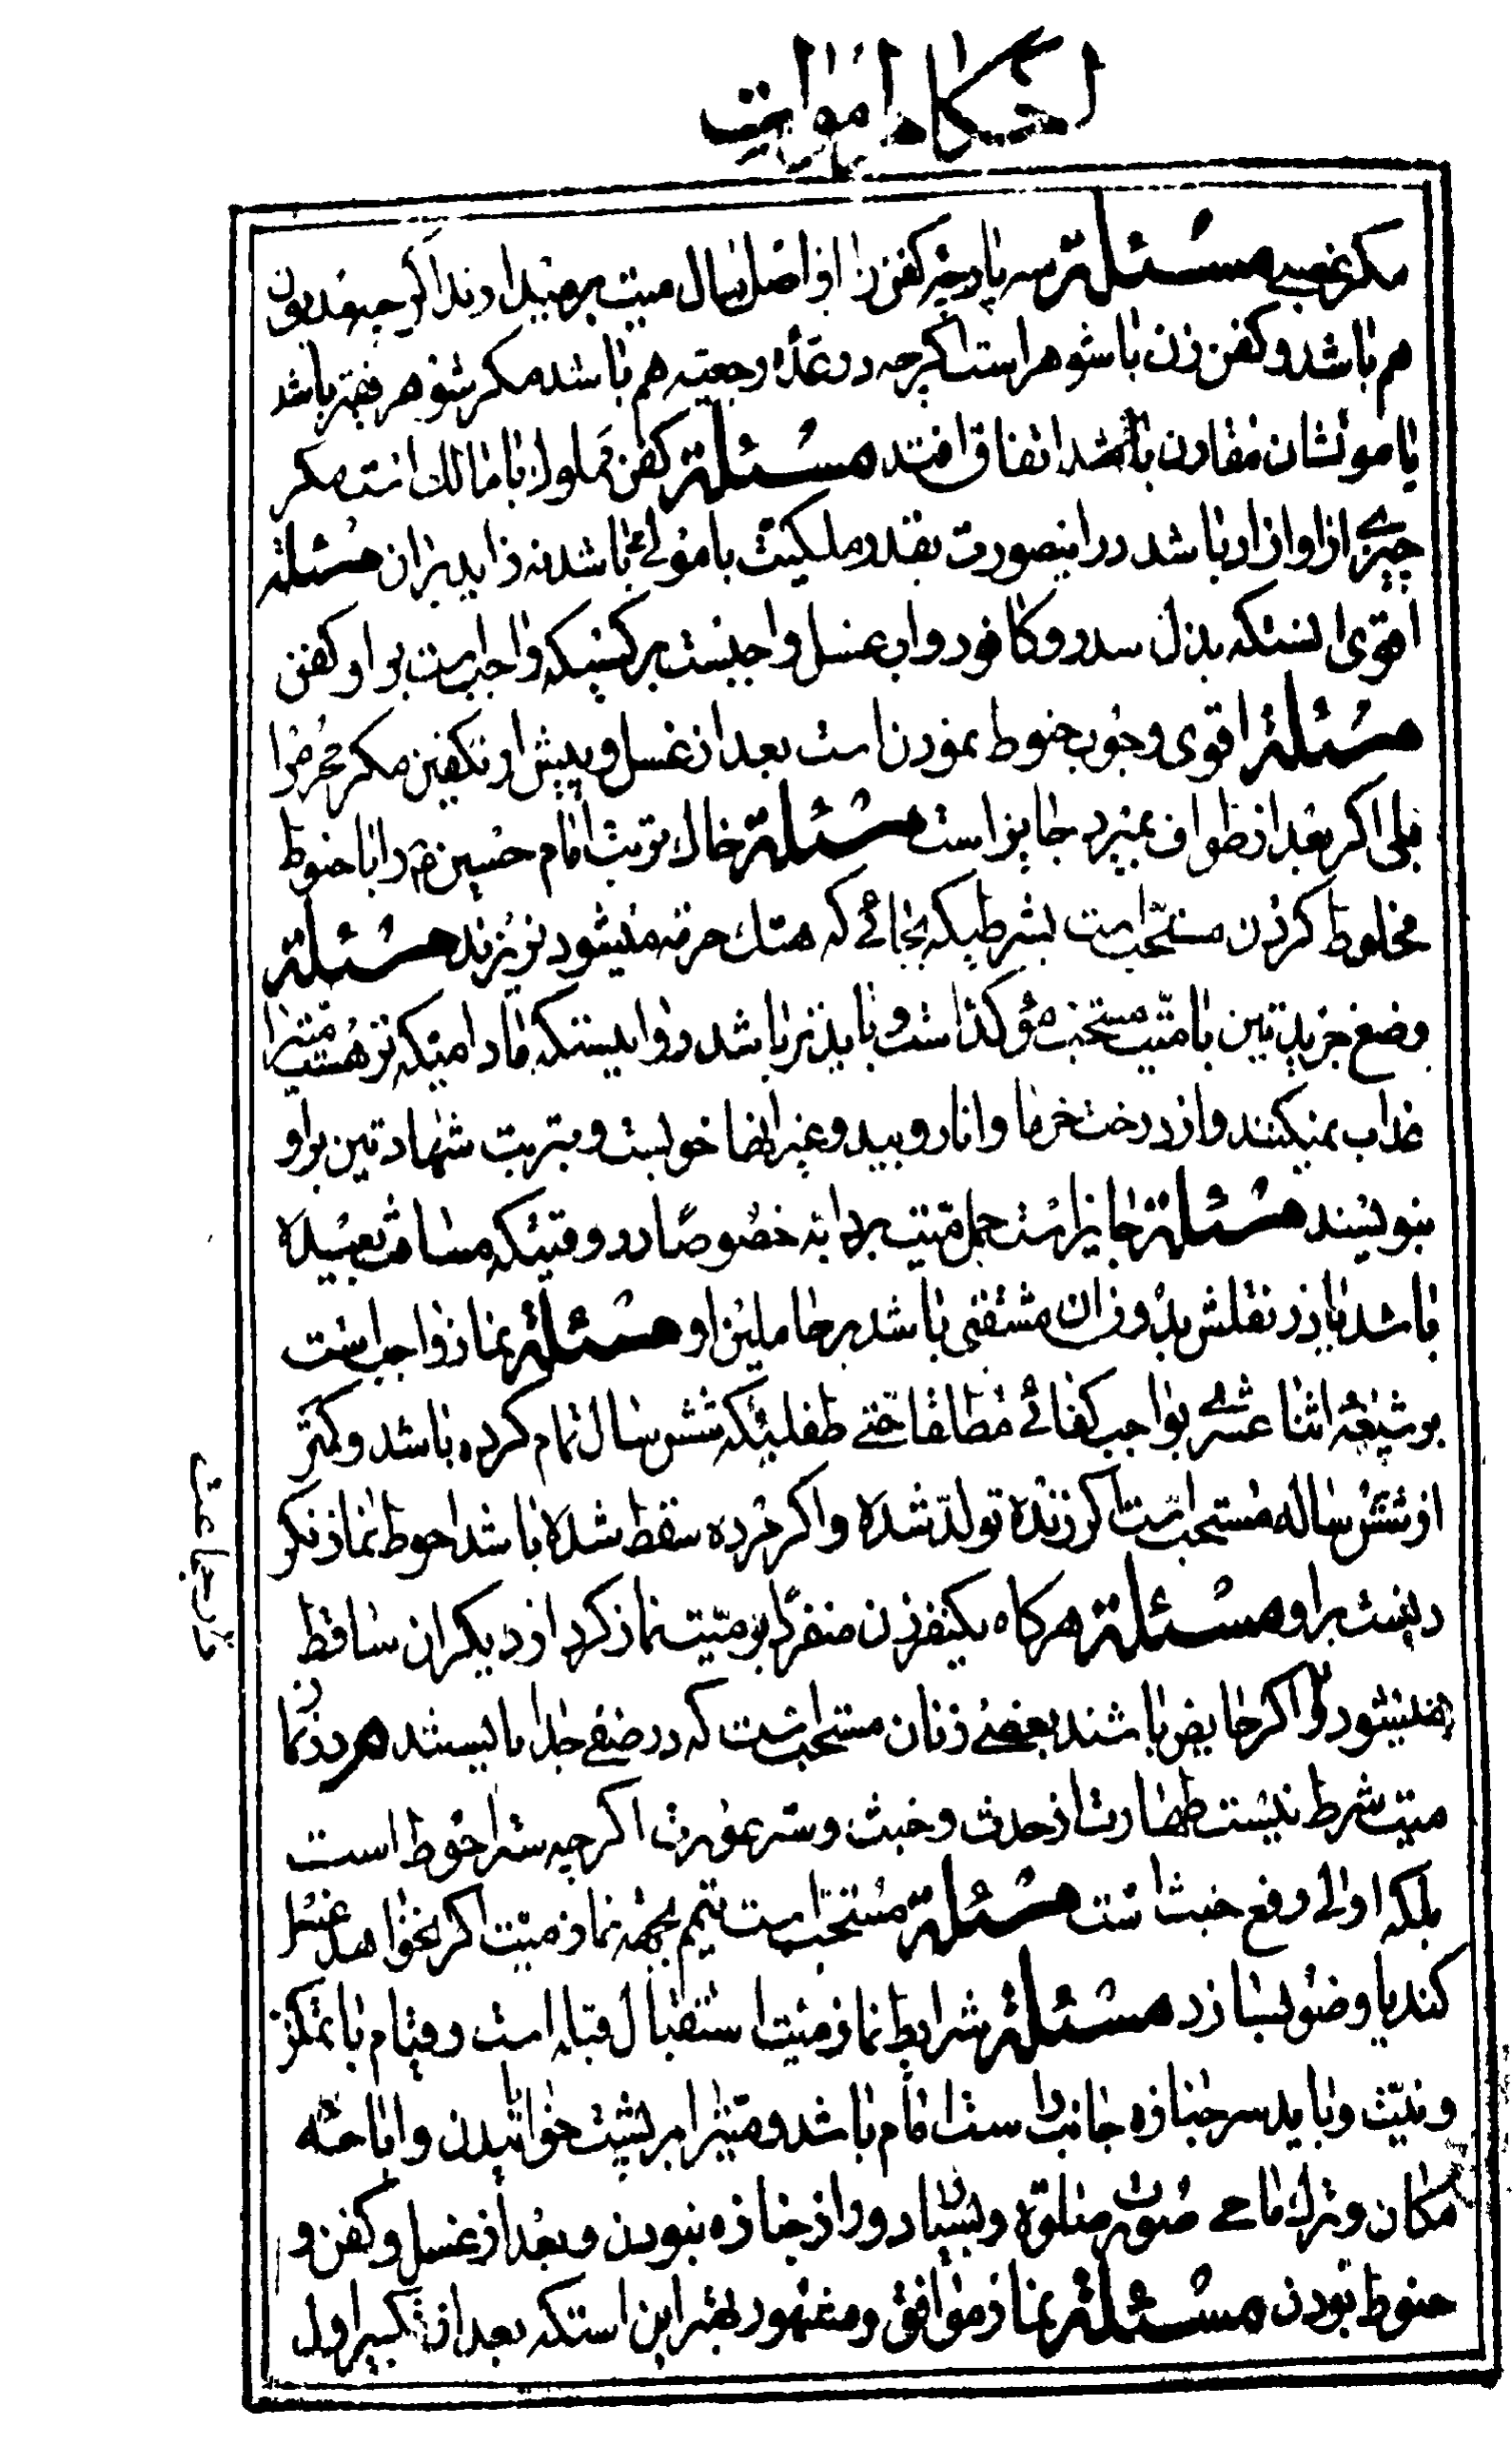 احکام اموات
مکر غصبے مسئلة سه پارچه کفن را از اصل مال میت برمیدارند اگرچه مدیون
هم باشد و کفن زن با شوهر است اکرچه در عدّه رجعیّه هم باشد مکر شوهر فقیر باشد
یا موتشان مقارن باشد اتفاق افتد مسئلة کفن مملوک با مالک است مکر
چیزے از او ازاد باشد در اینصورت بقدر ملکیّت با مولیٰ باشد نه زاید بران مسئلة
اقوی انستکه بذل سدر و کافور و اب غسل واجبست بر کسیکه واجبست بر او کفن
مسئلة اقوی وجوب حنوط نمودن است بعد از غسل و پیش از تکفین مکر محرم را
بلی اکر بعد از طواف بمیرد جایز است مسئلة خاک تربت امام حسین ع را با حنوط
مخلوط کردن مستحب است بشرطیکه بجائے که هتک حرمه میشود نریزند مسئلة
وضع جریدتین با میّت مستحب مؤکد است و باید تر باشد روایتستکه مادامیکه تر هست میّترا
عذاب نمیکنند و از درخت خرما و انار و بید و غیر انها خوبست و بتربت شهادتین بر او
بنویسند مسئلة جایز است حمل میّت بر دابه خصوصًا در وقتیکه مسافت بعیده
باشد یا در نقلش بدون ان مشقتی باشد بر حاملین او مسئلة نماز واجب است
بر شیعه اثنا عشرے بواجب کفائے مطلقا حتے طفلیکه شش سال تمام کرده باشد و کمتر
از شش ساله مستحب است اکر زنده تولّد شده و اکر مرده سقط شده باشد احوط نماز نکر
دنست بر او مسئلة هرکاه یکنفر زن منفردًا بر میّت نماز کرد از دیکران ساقط
میشود و اکر حایض باشند بعضے زنان مستحب است که در صفے جدا بایستند و در نماز
میت شرط نیست طهارت از حدث و خبث و ستر عورت اکرچه ستر احوط است
بلکه اولی رفع خبث است مسئلة مستحب است تیمم بجهة نماز میّت اکر نخواهد غسل
کند یا وضو بسازد مسئلة شرایط نماز میّت استقبال قبله است و قیام با تمکن
و نیّت و باید سر جنازه جانب راست امام باشد و میّترا بر پشت خوابانیدن و اباحهٔ
مکان و ترک ماحے صورت صلوة و بسیار دور از جنازه نبودن و بعد از غسل و کفن و
حنوط بودن مسئلة نماز موافق و مشهور بهتر این استکه بعد از تکبیر اول